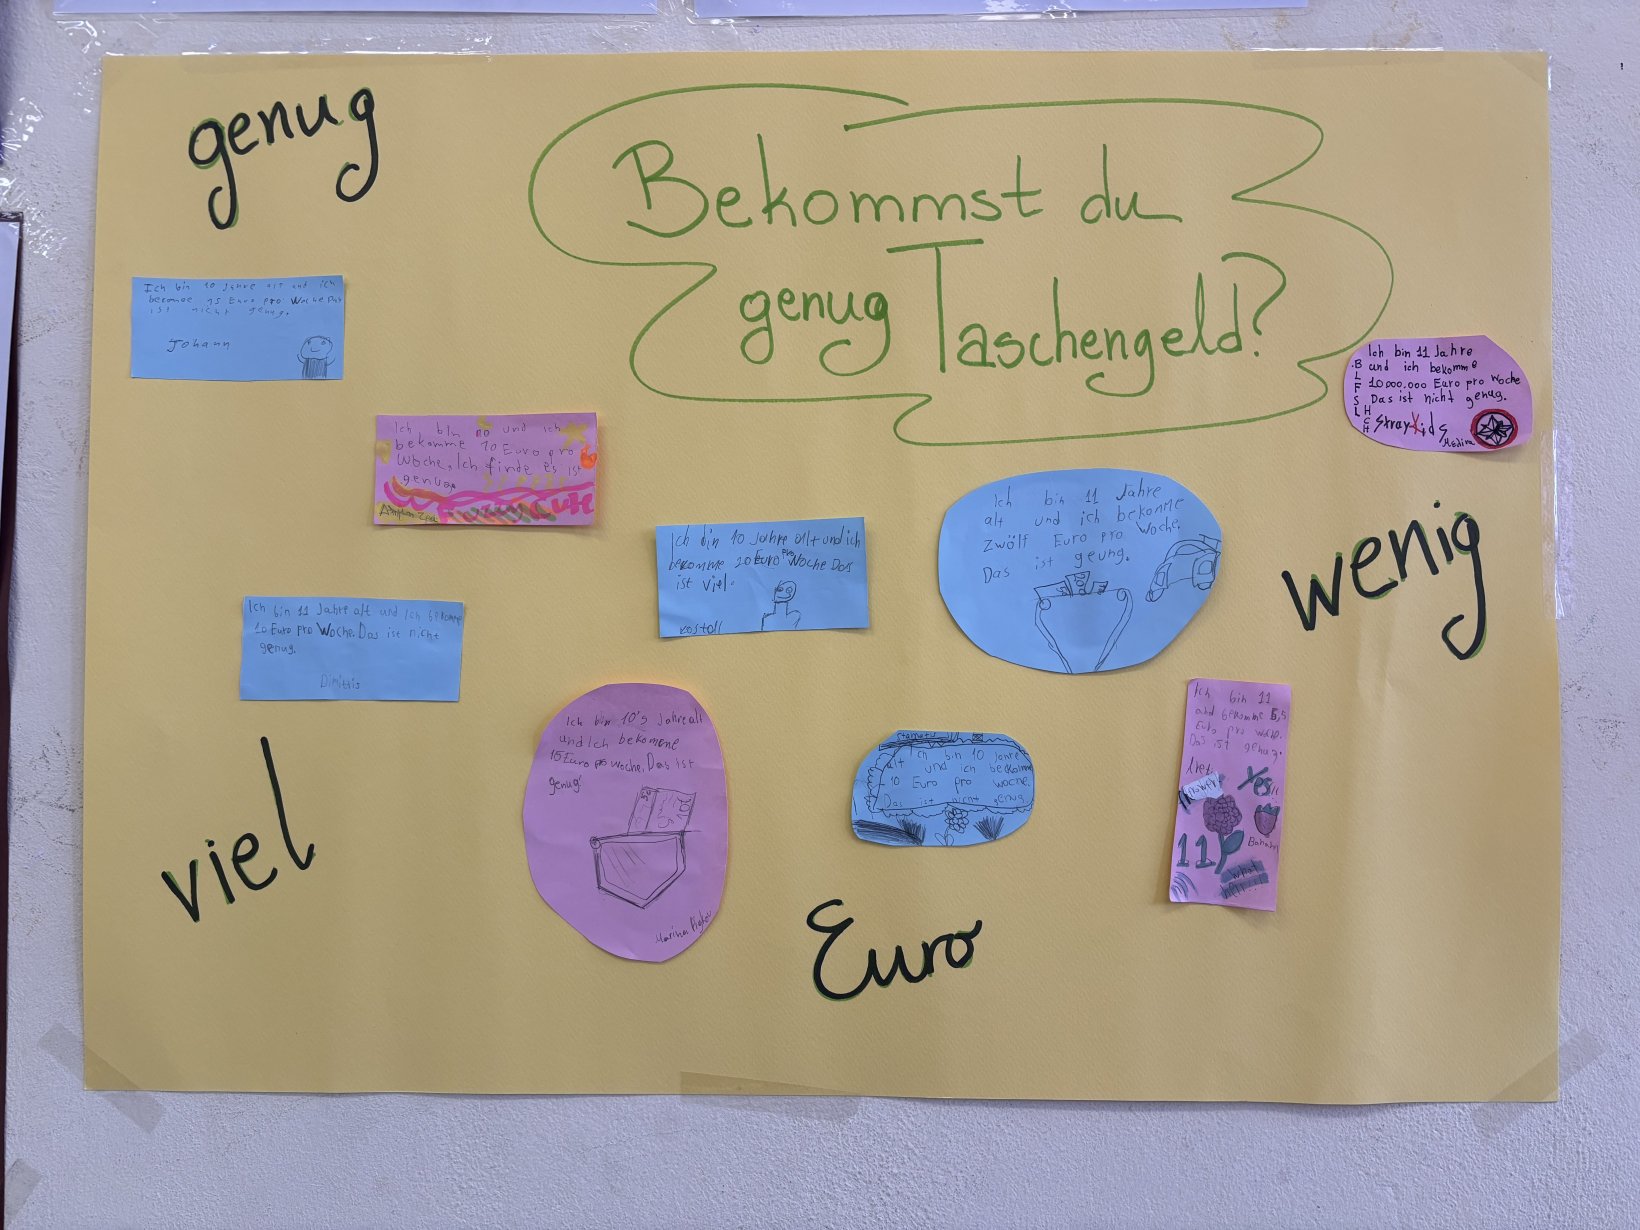 genug
Bekommst du
genug Taschengeld?
Ich bin 10 Jahre alt und ich
bekomme 15 Euro pro Woche Das
ist nicht genug.
Johann
Ich bin 11 Jahre
und ich bekomme
10000.000 Euro pro Woche
Das ist nicht genug.
Stray Kids
Medina
Ich bin 10 und ich
bekomme 10 Euro pro
Woche. Ich finde es ist
genug.
Ich bin 10 Jahre alt und ich
bekomme 20 Euro pro Woche Das
ist viel.
Ich bin 11 Jahre
alt und ich bekomme
zwölf Euro pro Woche.
Das ist geung.
wenig
Ich bin 11 Jahre alt und Ich bekomme
10 Euro pro Woche. Das ist nicht
genug.
Dimitris
Ich bin 10'5 Jahre alt
und Ich bekomene
15 Euro pro Woche. Das ist
genug!
Marina
Ich bin 10 Jahre
alt und ich bekomme
10 Euro pro Woche.
Das ist nicht genug
Ich bin 11
und bekomme 5,5
Euro pro Woche.
Das ist genug.
Yes!!
11
what
hell!!!
viel
Euro